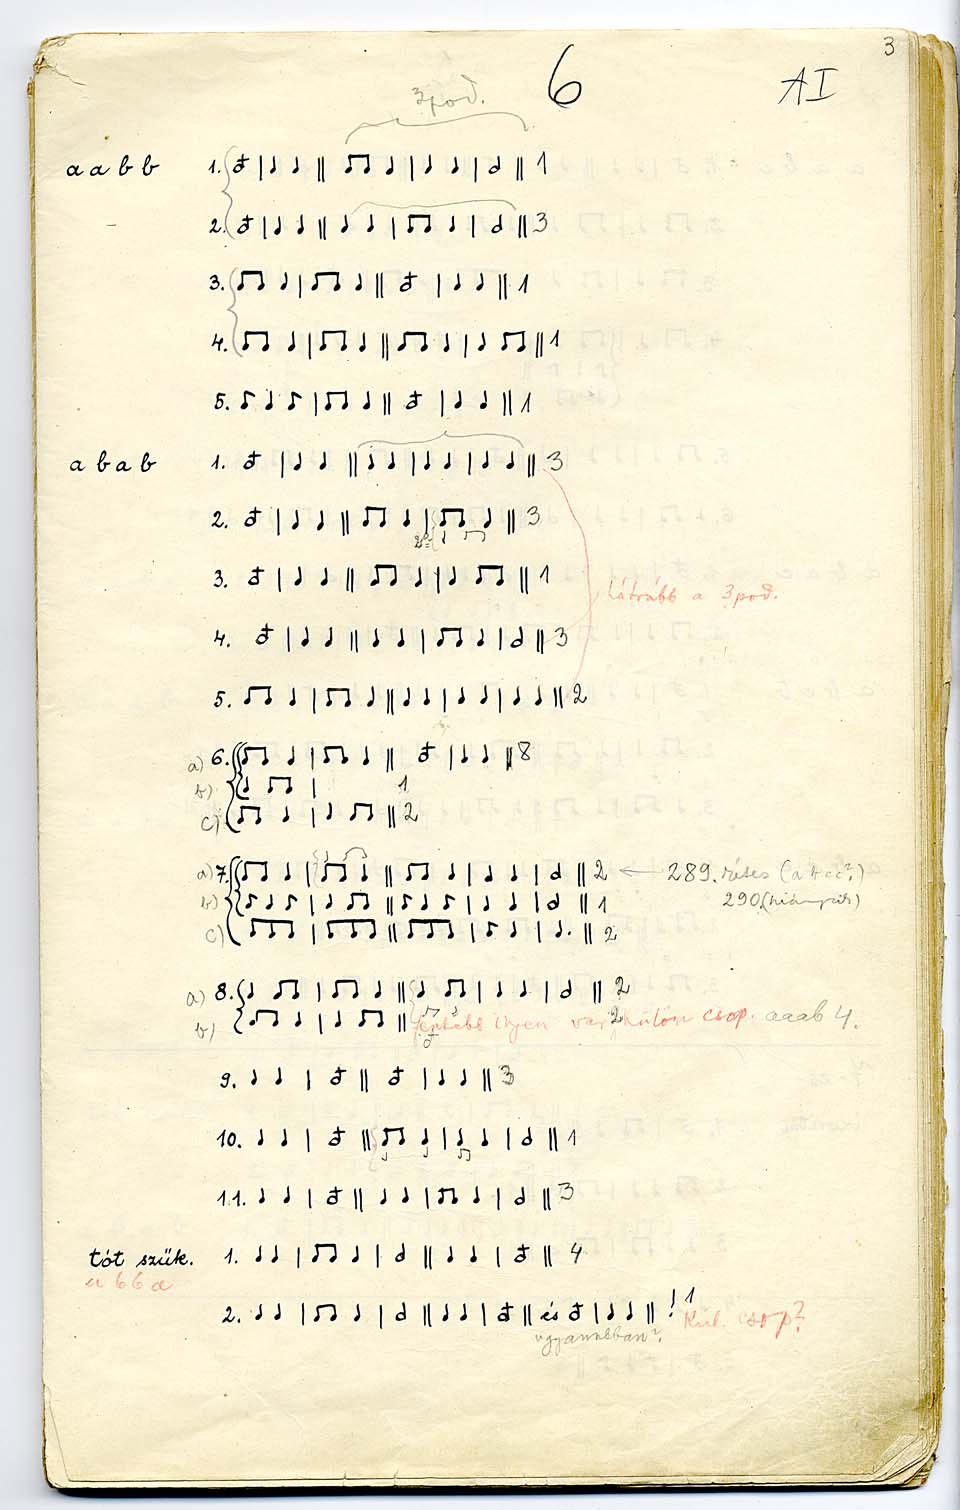 3
3pod. 6 AI
a a b b 1. 1
2. 3
3. 1
4. 1
5. 1
a b a b 1. 3
2. 3
3. 1
hátrább a 3pod.
4. 3
5. 2
a) 6. 8
b) 1
c) 2
a) 7. 2 ← 289.
b) 1 290
c) 2
a) 8. 2
b) 2 ilyen külön csop. aaab 4.
9. 3
10. 1
11. 3
tót szük. 1. 4
a b b a
2. és ! 1 Kül. csop?
ugyanabban?